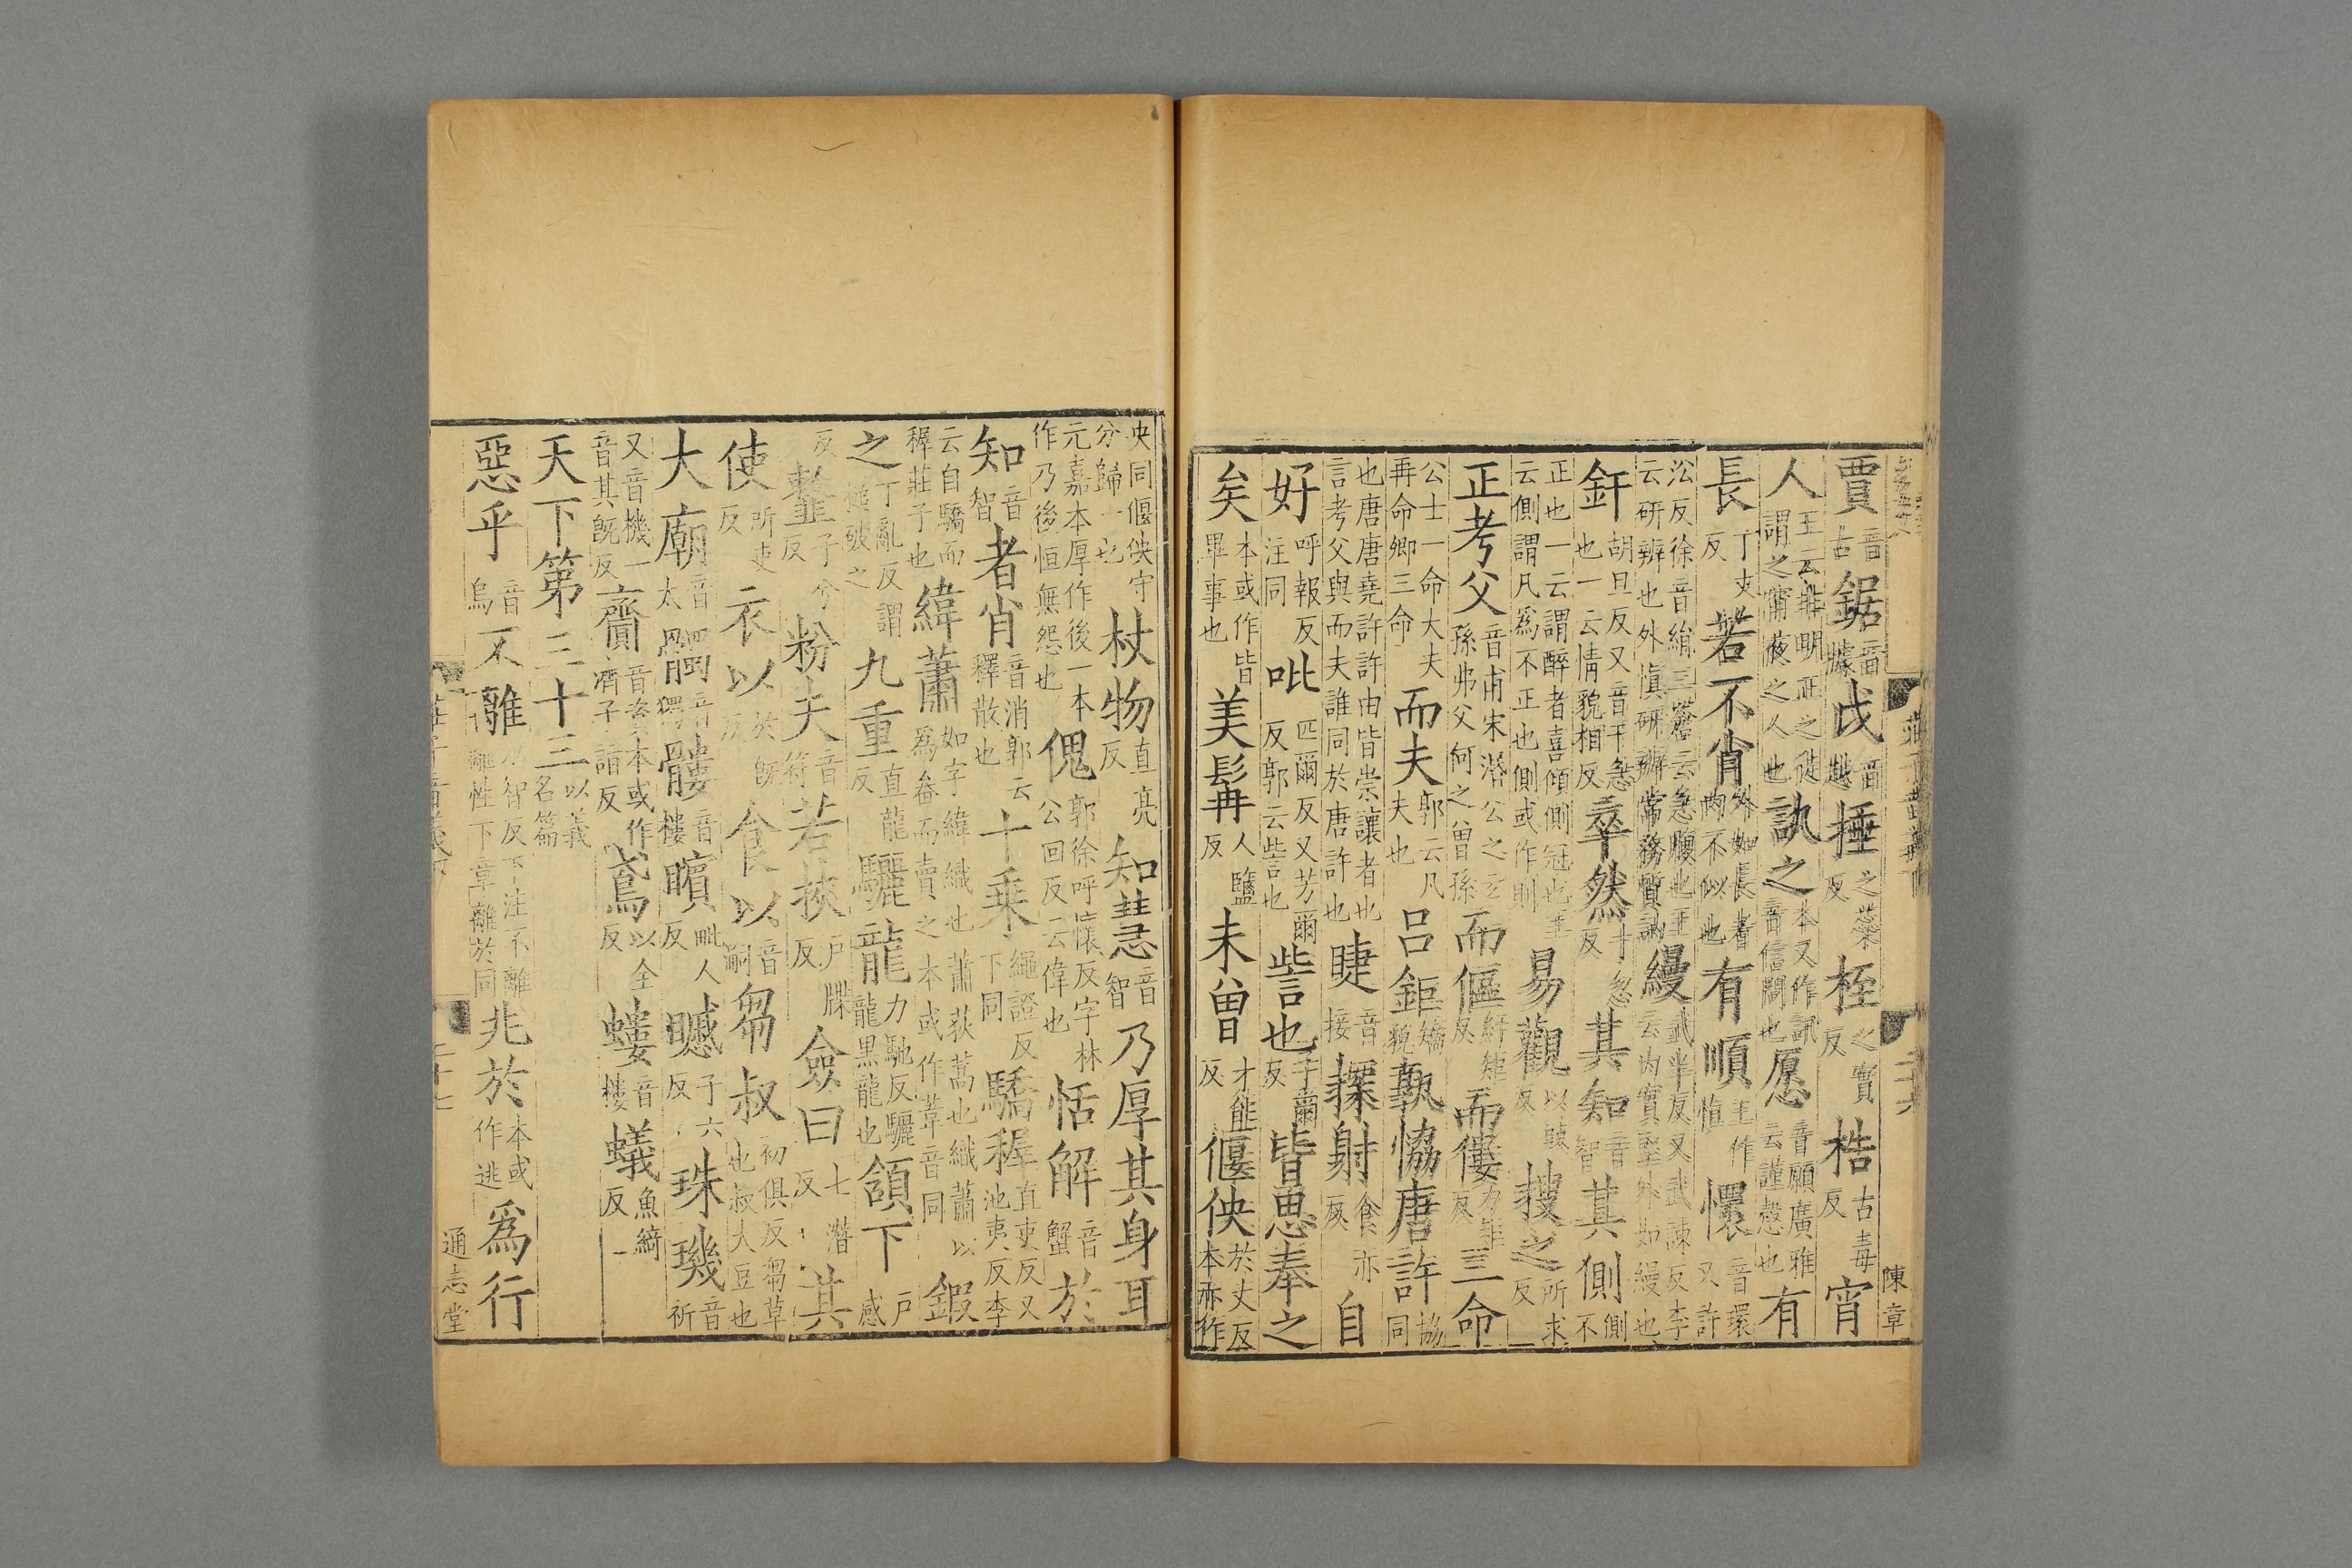 賈音古鋸音據戉音越捶之蘂反桎之實反梏古毒反宵
人王云非明正之徒謂之宵夜之人也訊之本又作訊音信問也愿音願廣雅云謹慤也有
長丁丈反若不肖外如長者内不似也有順王作慎懁音環又許
沿反徐音絹三蒼云急腰也王云研辨也外慎研辨常務質訥縵武半反又武諫反李云内實堅外如縵也
釬胡旦反又音干急也一云情貌相反卒然寸忽反其知音智其側側不
正也一云謂醉者喜傾側冠也王云側謂凡爲不正也側或作則易觀以豉反搜之所求反一
正考父音甫宋湣公之玄孫弗父何之曾孫而傴紆矩反而僂力矩反三命
公士一命大夫再命卿三命而夫郭云凡夫也吕鉅矯貌孰協唐許協同
也唐唐堯許許由皆崇讓者也言考父與而夫誰同於唐許也睫音接探射食亦反自
好呼報反注同吡匹爾反又芳爾反郭云訾也訾也子爾反皆思奉之
矣本或作皆畢事也美髯人鹽反未曾才能反偃佒於丈反本亦作
莊子音義下
二十六
陳章
央同偃佒守分歸一也杖物直亮反知慧音智乃厚其身耳
元嘉本厚作後一本作乃後恒無怨也傀郭徐呼懷反字林公回反云偉也恬解音蟹於
知音智者肖音消郭云釋散也十乘繩證反下同驕穉直吏反又池夷反李
云自驕而穉莊子也緯蕭如字緯織也蕭荻蒿也織蕭以爲畚而賣之本或作葦音同鍜
之丁亂反謂槌破之九重直龍反驪龍力馳反驪龍黑龍也頷下户感
反子兮反粉夫音符若挾户牒反僉曰七潛反其
使所吏反衣以於既反食以音嗣芻叔初俱反芻草也叔大豆也
大廟音太髑音獨髏音樓矉毗人反子六反珠璣音祈
又音機一音其既反齎音咨本或作濟子詣反鳶以全反螻音樓蟻魚綺反
天下第三十三以義名篇
惡乎音烏不離力智反下注不離離性下章離於同兆於本或作逃爲行
莊子音義下
二十七
通志堂